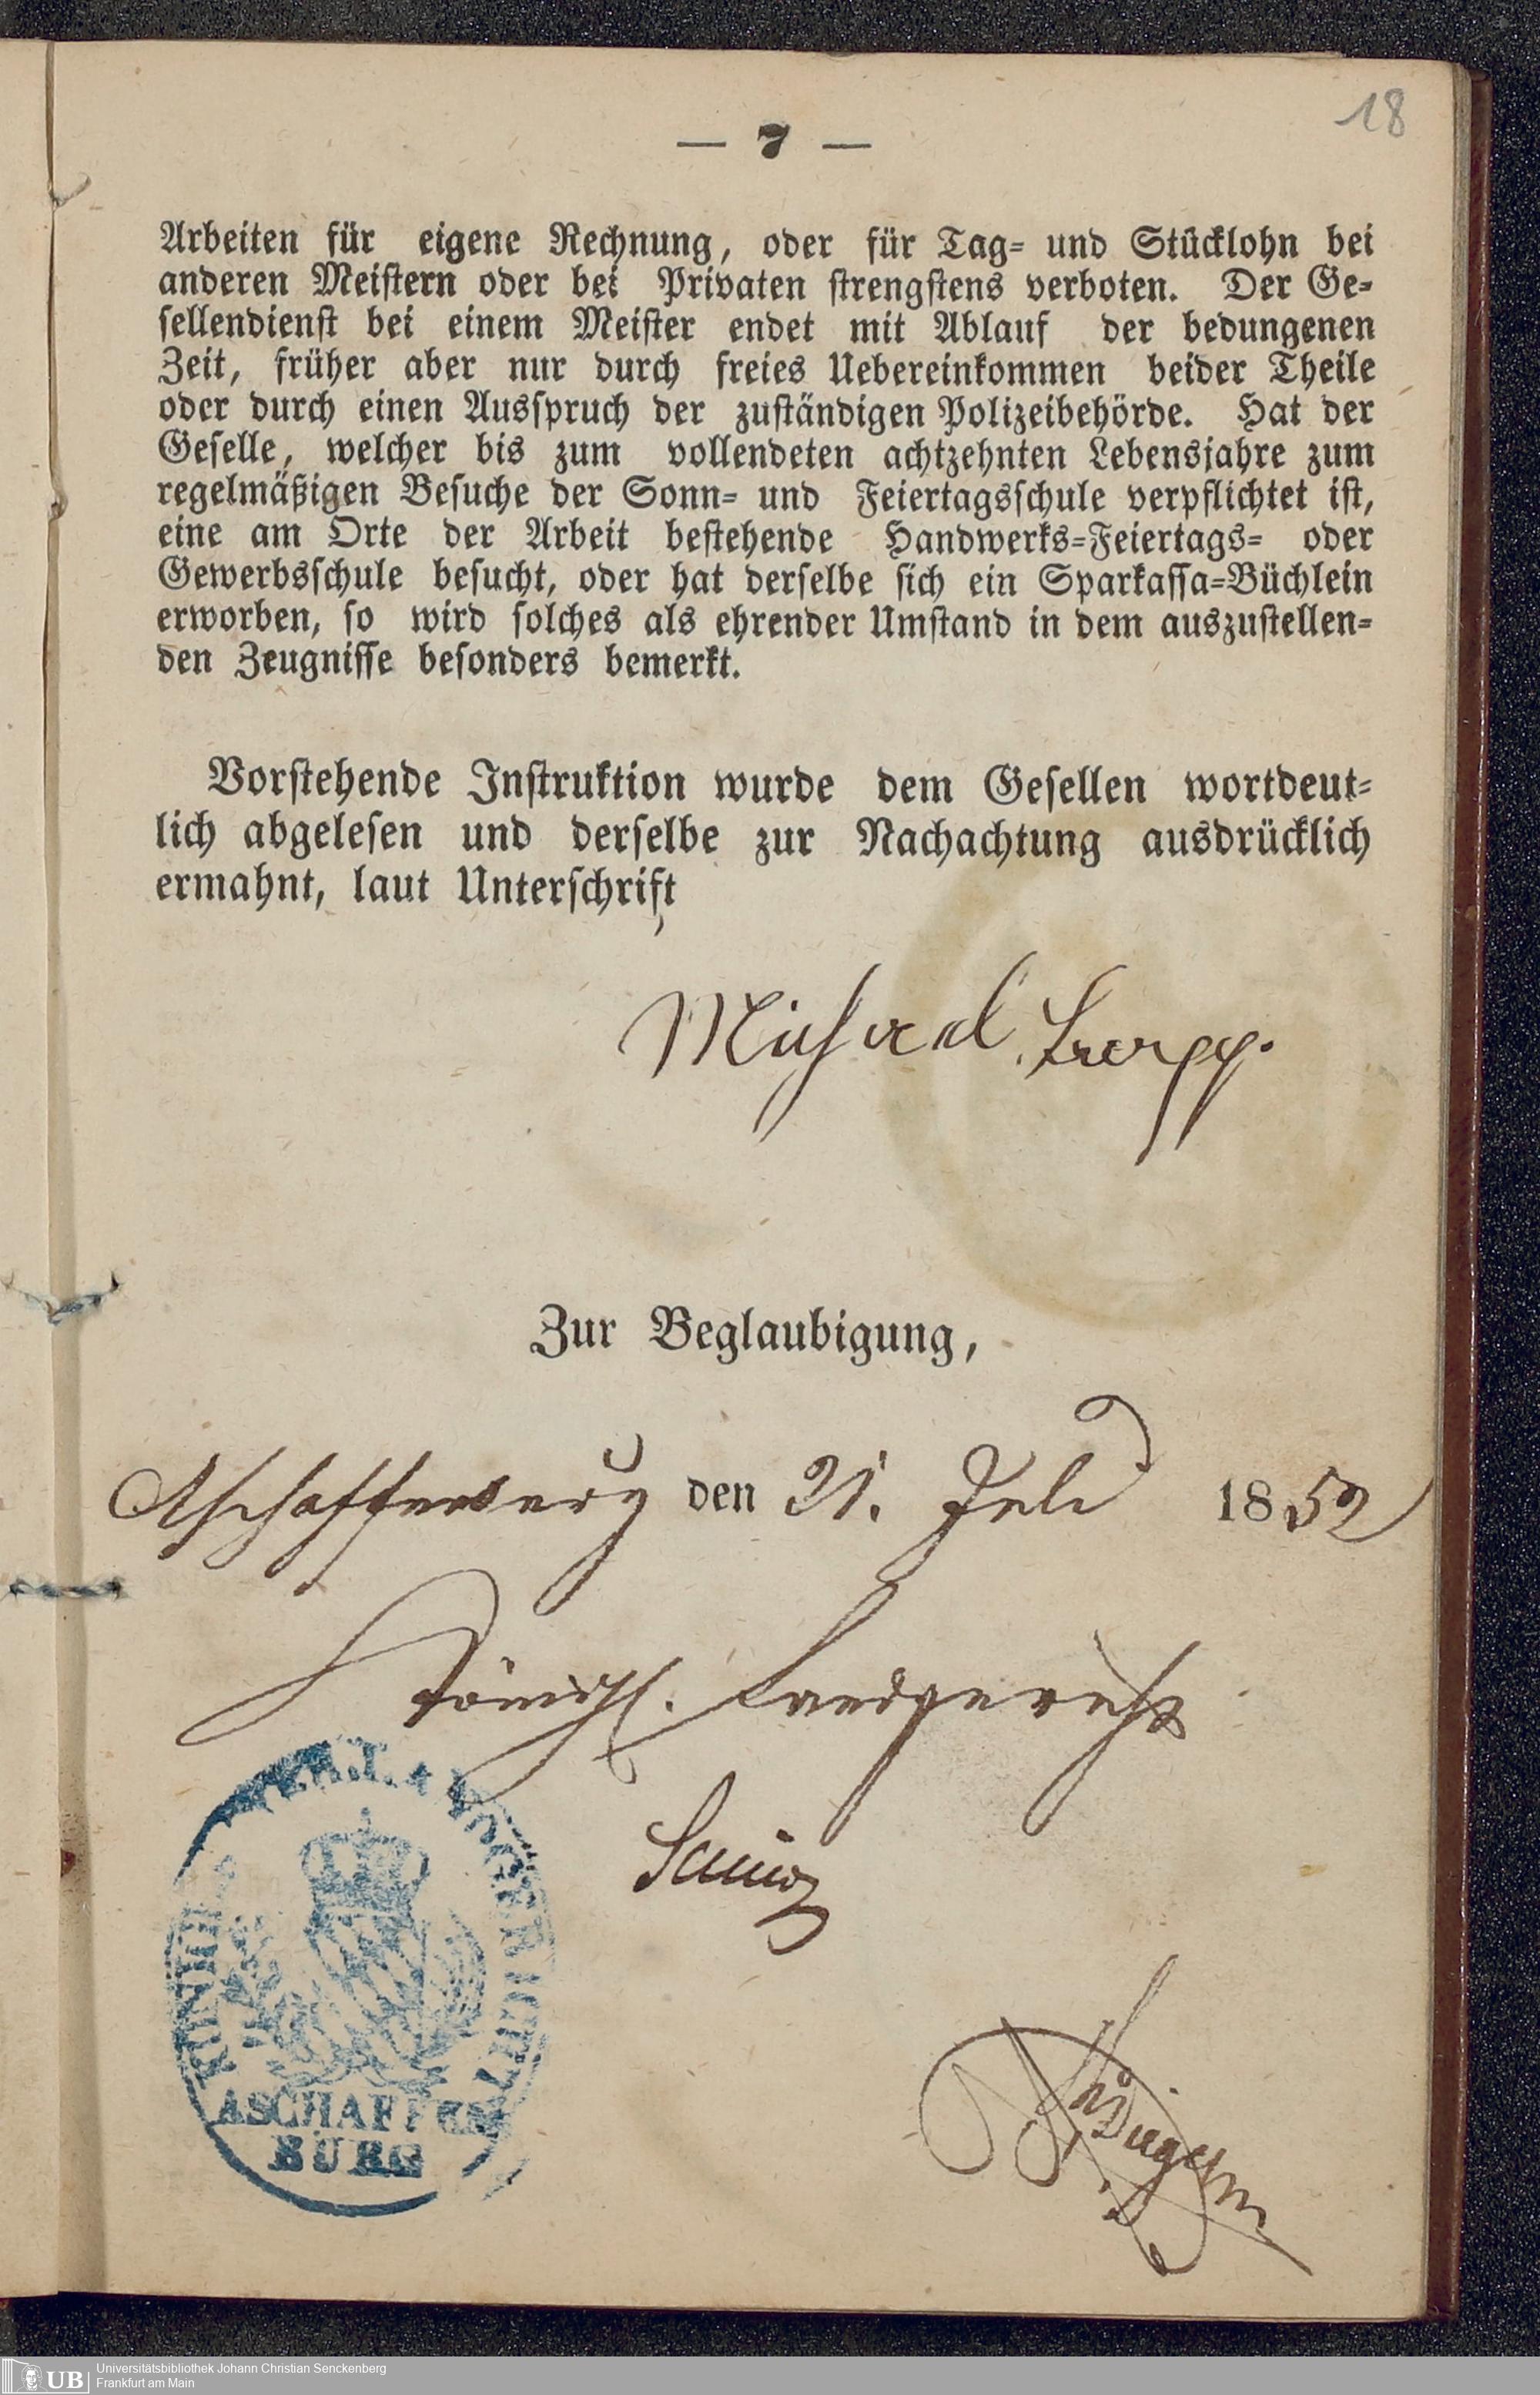 18
— 7 —
Arbeiten für eigene Rechnung, oder für Tag- und Stücklohn bei
anderen Meistern oder bei Privaten strengstens verboten. Der Ge-
sellendienst bei einem Meister endet mit Ablauf der bedungenen
Zeit, früher aber nur durch freies Uebereinkommen beider Theile
oder durch einen Ausspruch der zuständigen Polizeibehörde. Hat der
Geselle, welcher bis zum vollendeten achtzehnten Lebensjahre zum
regelmäßigen Besuche der Sonn- und Feiertagsschule verpflichtet ist,
eine am Orte der Arbeit bestehende Handwerks-Feiertags- oder
Gewerbsschule besucht, oder hat derselbe sich ein Sparkassa-Büchlein
erworben, so wird solches als ehrender Umstand in dem auszustellen-
den Zeugnisse besonders bemerkt.
Vorstehende Instruktion wurde dem Gesellen wortdeut-
lich abgelesen und derselbe zur Nachachtung ausdrücklich
ermahnt, laut Unterschrift
Michael
Zur Beglaubigung,
Aschaffenburg den 21. Juli 1852
Königl. Landgericht
ASCHAFFEN
BURG
UB Universitätsbibliothek Johann Christian Senckenberg
Frankfurt am Main